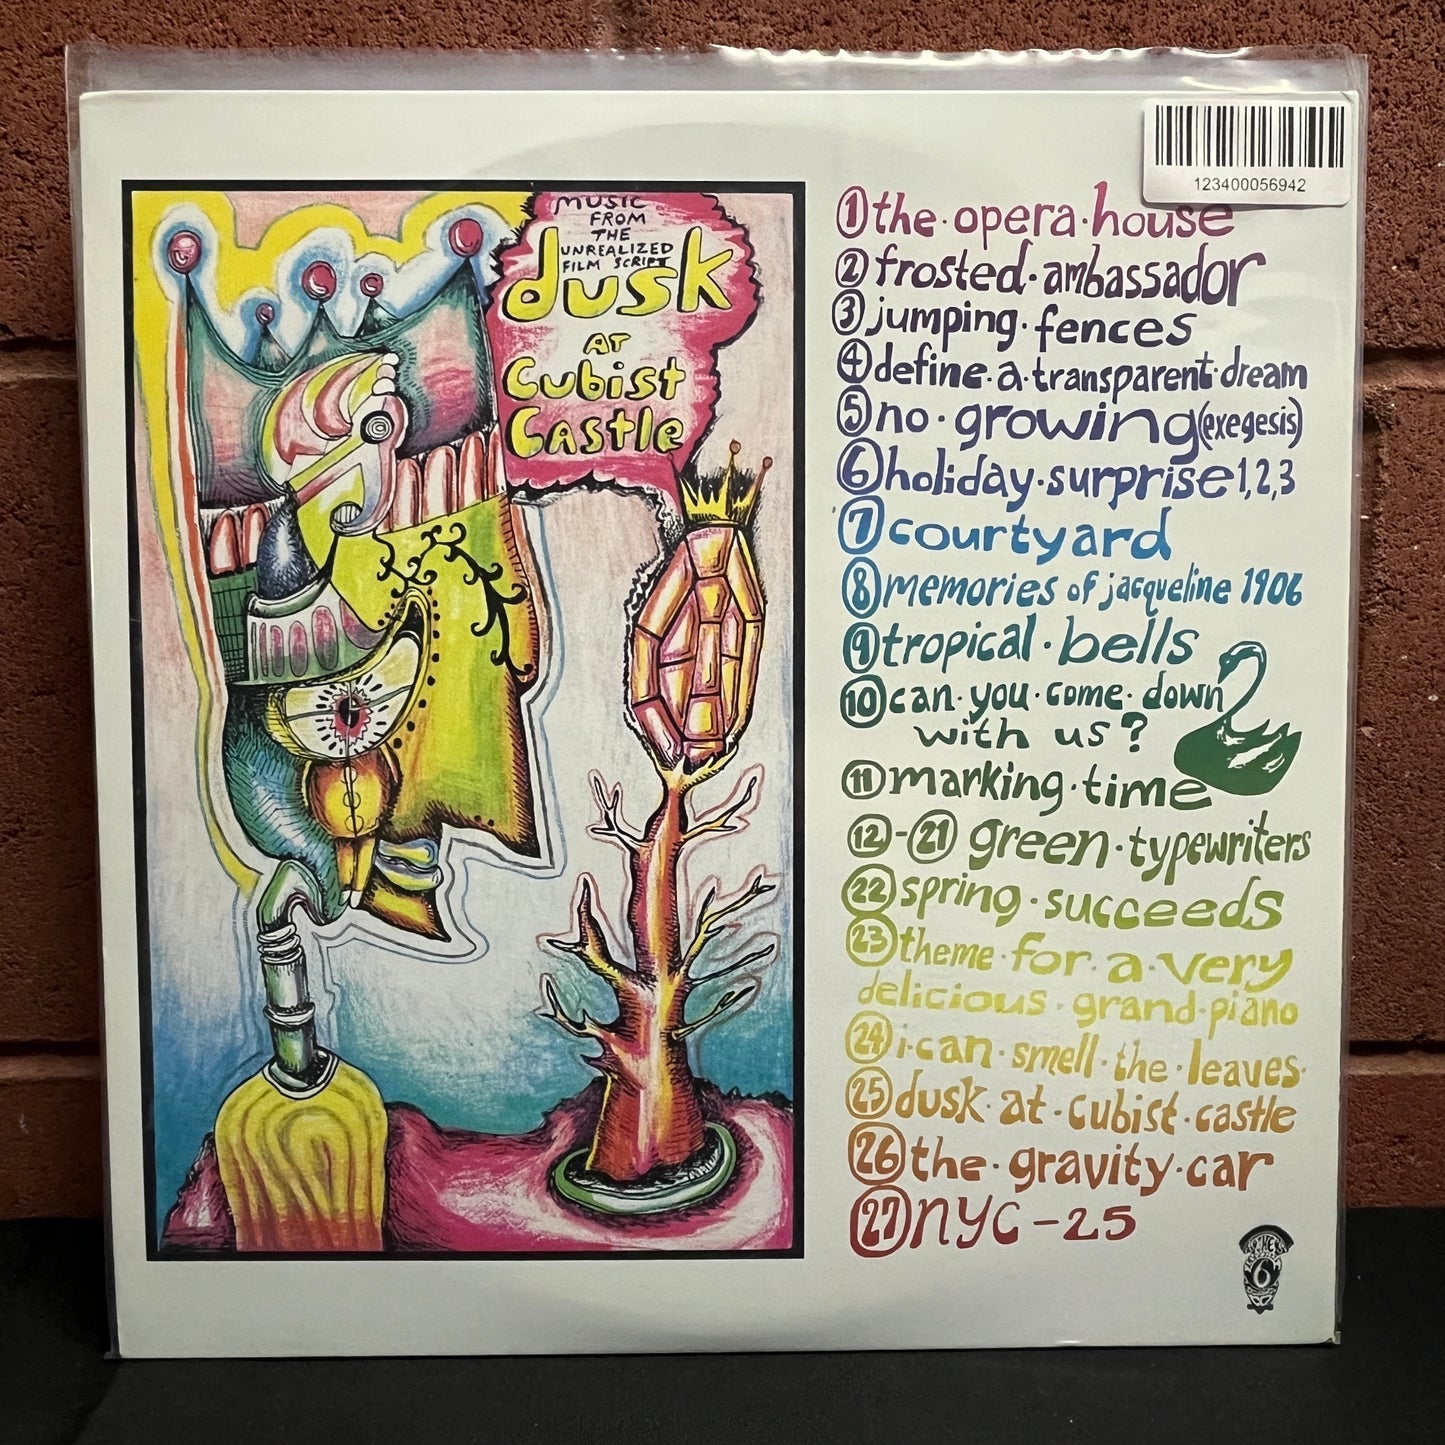 123400056942
MUSIC
FROM
THE
UNREALIZED
FILM SCRIPT
dusk
AT
Cubist
Castle
1 the·opera·house
2 frosted·ambassador
3 jumping·fences
4 define·a·transparent·dream
5 no·growing(exegesis)
6 holiday·surprise 1,2,3
7 courtyard
8 memories of jacqueline 1906
9 tropical·bells
10 can·you·come·down
with us?
11 marking·time
12-21 green·typewriters
22 spring·succeeds
23 theme·for·a·very
delicious·grand·piano
24 i·can·smell·the·leaves·
25 dusk·at·cubist·castle
26 the·gravity·car
27 nyc-25
6